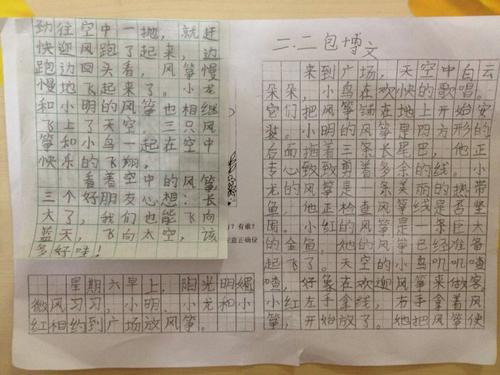 二.二包博文
星期六早上,阳光明媚
微风习习,小明、小龙和小
红相约到广场放风筝。
来到广场,天空中白云
朵朵,小鸟在欢快的歌唱。
它们把风筝铺在地上开始安
装。小明的风筝是四方形的
后面拖着三条长尾巴,他正
专心致致剪着多余的线。小
龙的风筝是一条美丽的热带
鱼,他正检查风筝线是否坚
固。小红的风筝是一条巨大
的金鱼,她的风筝已经准备
起飞了。天空的小鸟叽叽喳
喳,好象在欢迎风筝来做客
小红左手拿线,右手拿着风
筝,开始放了。她把风筝使
劲往空中一抛,就赶
快迎风跑了起来,边
跑边回头看,风筝慢
慢地飞起来了。小龙
和小明的风筝也相继
飞上了天空,三只风
筝和小鸟一起在空中
快乐的飞翔。
看着空中的风筝
三个好朋友心想:长
大了,我们也能飞向
蓝天,飞向太空,该
多好哇!